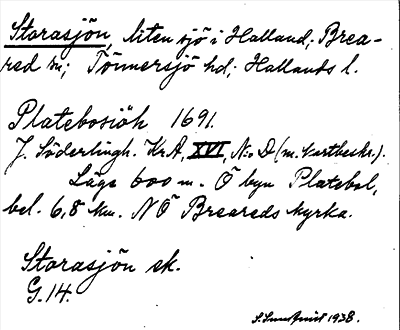 Storasjön, liten sjö i Halland; Brea-
red sn; Tönnersjö hd; Hallands l.
Platebosiöh 1691.
J. Söderlingh. Kr.A. XVI, N:o D (m. kartbeskr.).
Läge 600 m. Ö byn Platebol,
bel. 6,8 km. NÖ Breareds kyrka.
Storasjön ek.
G. 14.
S. Sundquist 1938.